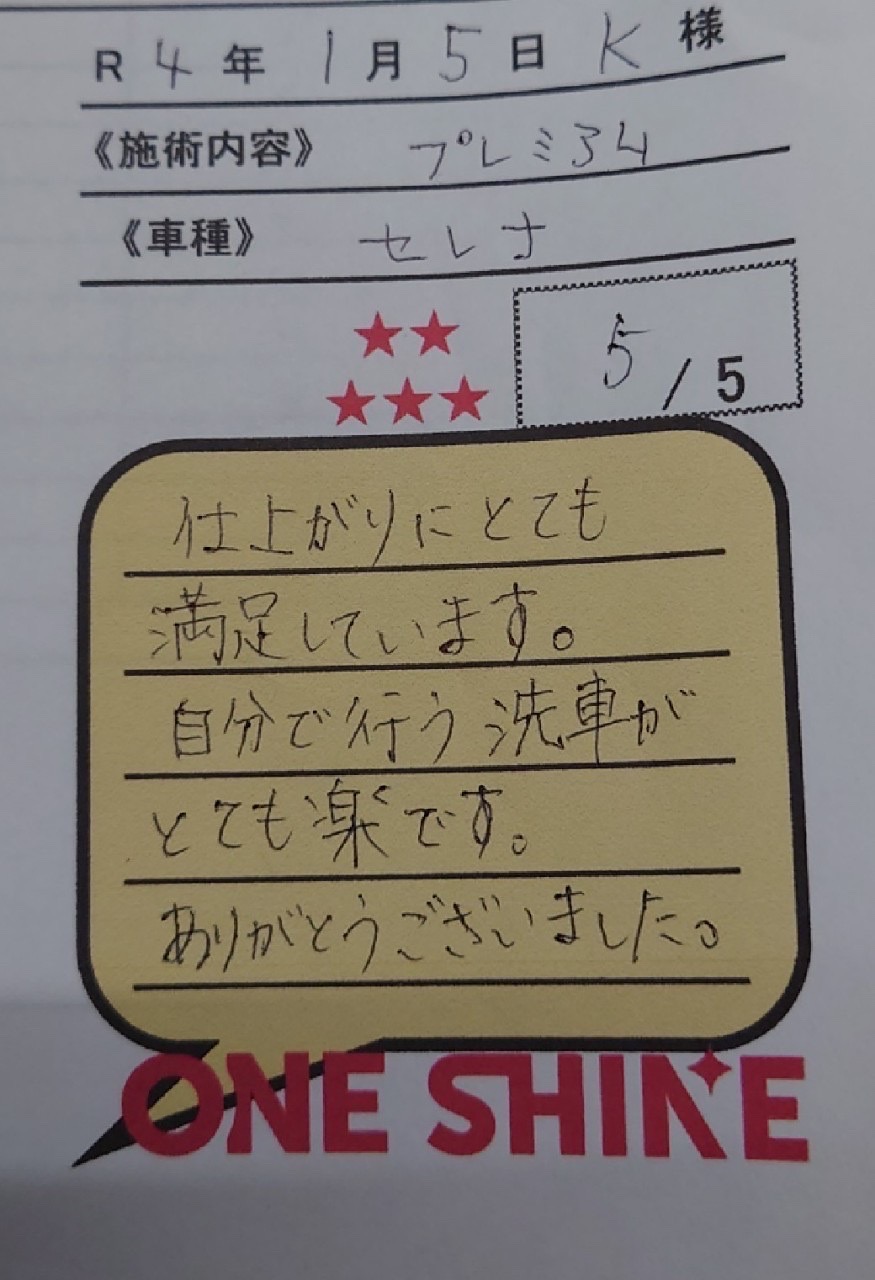 R 4 年 1 月 5 日 K 様
《施術内容》 プレミアム
《車種》 セレナ
5 / 5
仕上がりにとても
満足しています。
自分で行う洗車が
とても楽です。
ありがとうございました。
ONE SHINE